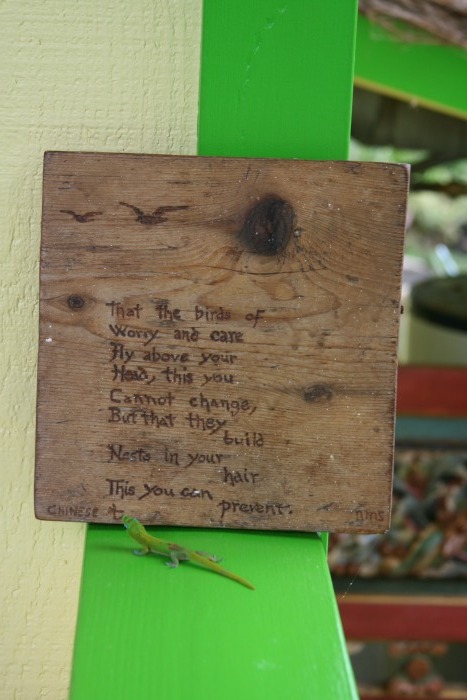 That the birds of
Worry and care
Fly above your
Head, this you
Cannot change,
But that they
build
Nests in your
hair
This you can
prevent.
CHINESE